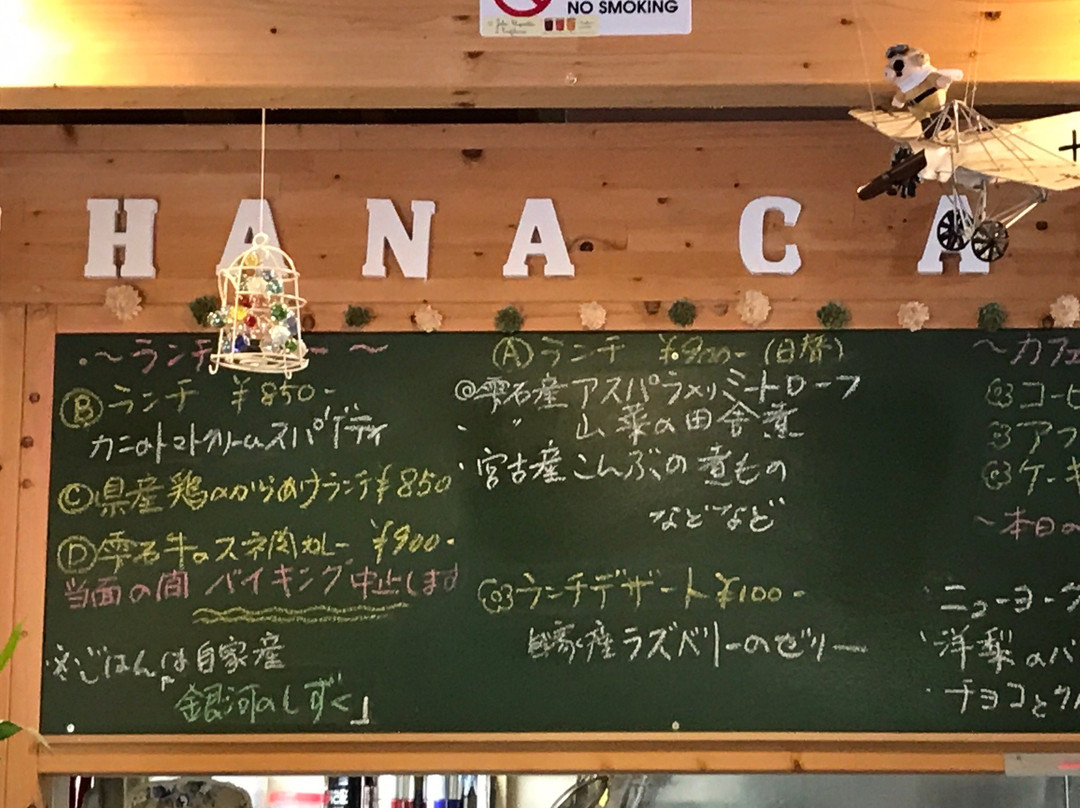 NO SMOKING
HANA CA
・～ランチ ー～
Ⓑランチ ￥850-
カニのトマトクリームスパゲティ
Ⓒ県産鶏のからあげランチ￥850
Ⓓ雫石牛のスネ肉カレー ￥900-
当面の間 バイキング中止します
※ごはんは自家産
銀河のしずく」
Ⓐランチ ￥900-(日替)
◎雫石産アスパラ入りミートローフ
・ 〃 山菜の田舎煮
・宮古産こんぶの煮もの
などなど
ランチデザート￥100-
自家産ラズベリーのゼリー
～カフェ
コーヒ
アフ
ケーキ
～本日の
ニューヨーク
・洋梨のバ
・チョコと